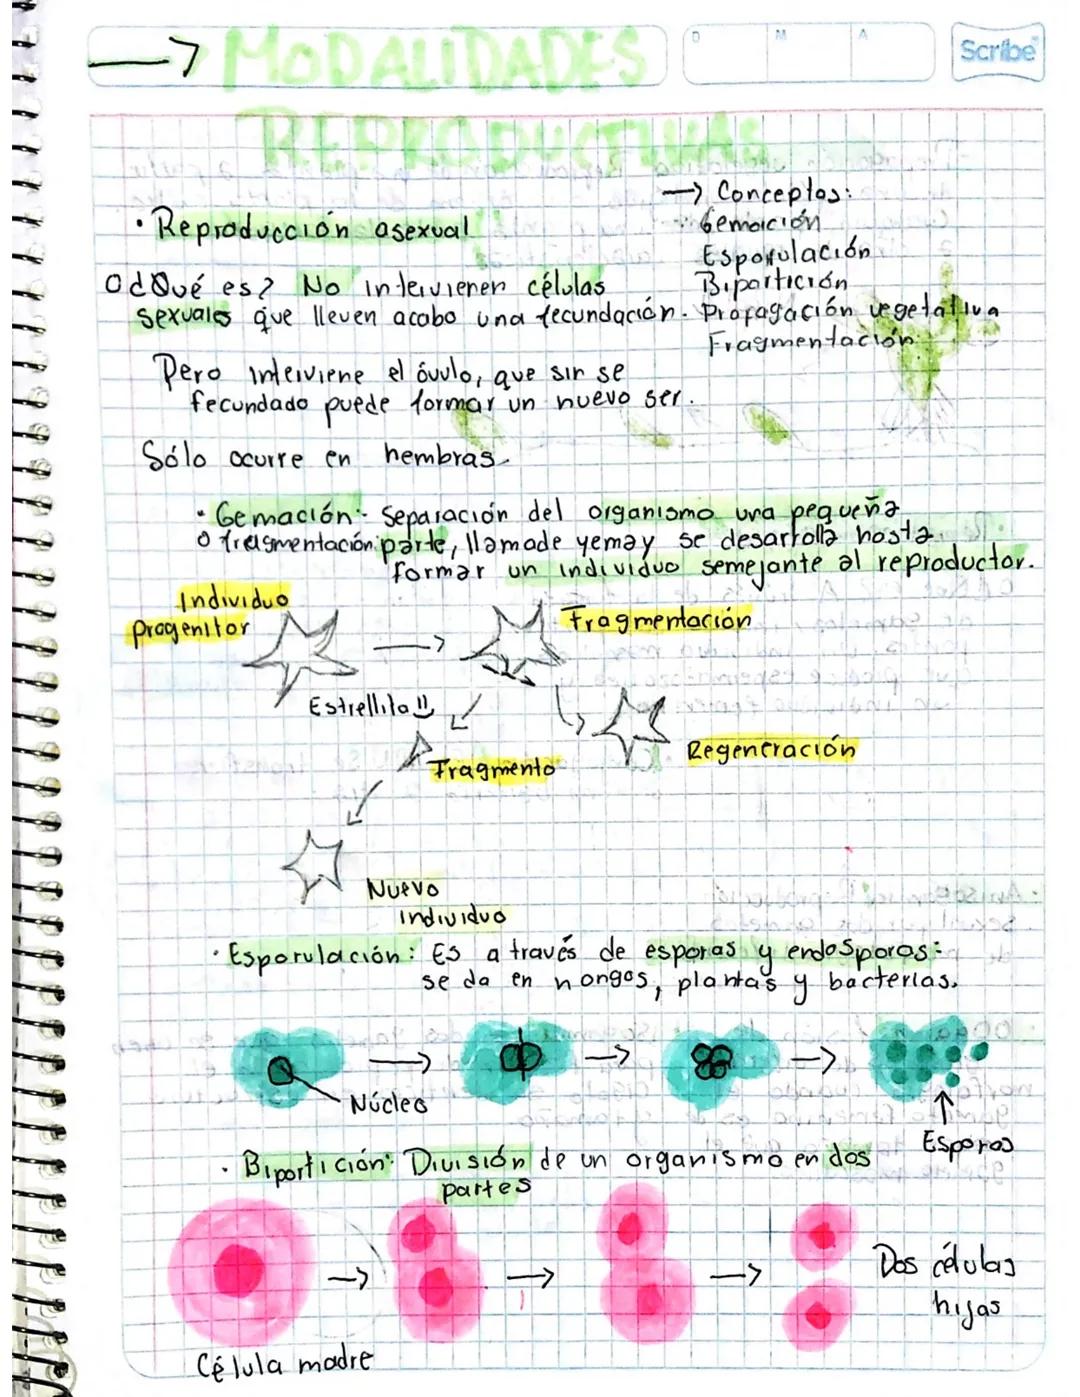 → MODALIDADES
REPRODUCTIVAS
D M A
Scribe
→ Conceptos:
Gemación
Esporulación
Bipartición
Propagación vegetativa
Fragmentación
• Reproducción asexual
¿Qué es? No intervienen células
sexuales que lleven acabo una fecundación.
Pero interviene el óvulo, que sin se
fecundado puede formar un nuevo ser.
Sólo ocurre en hembras
• Gemación: Separación del organismo una pequeña
o fragmentación parte, llamade yema y se desarrolla hasta
formar un individuo semejante al reproductor.
Individuo
progenitor
Fragmentación
Estrellita
Regeneración
Fragmento
Nuevo
individuo
• Esporulación: Es a través de esporas y endosporos:
se da en hongos, plantas y bacterias.
Núcleo
Esporas
• Bipartición: División de un organismo en dos
partes
Dos células
hijas
Célula madre